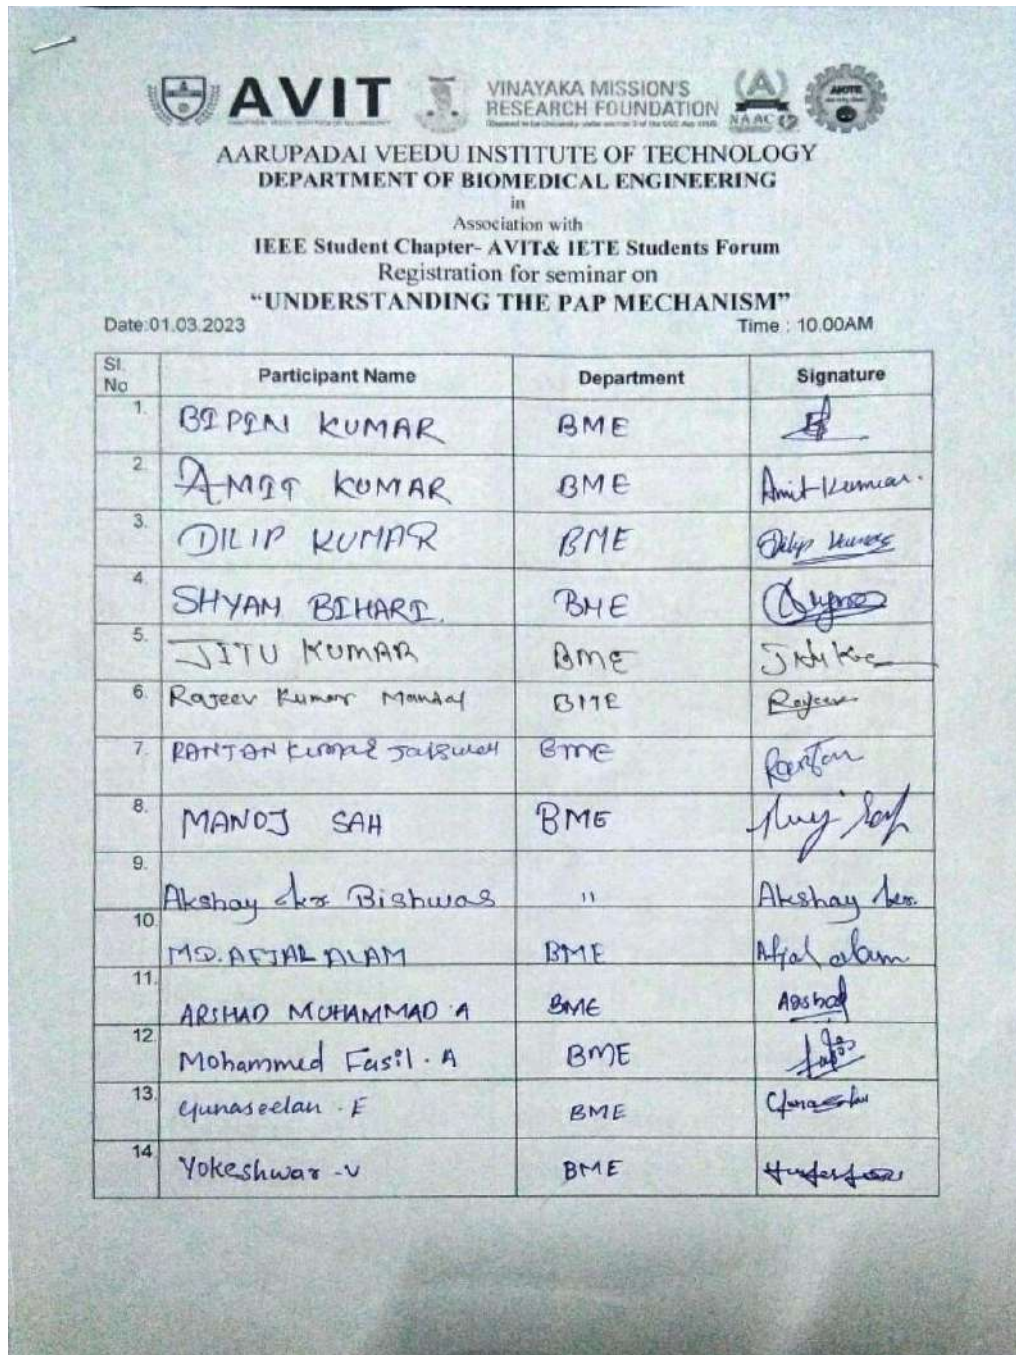 AVIT
VINAYAKA MISSION'S
RESEARCH FOUNDATION
NAAC
AICTE
AARUPADAI VEEDU INSTITUTE OF TECHNOLOGY
DEPARTMENT OF BIOMEDICAL ENGINEERING
in
Association with
IEEE Student Chapter- AVIT& IETE Students Forum
Registration for seminar on
“UNDERSTANDING THE PAP MECHANISM”
Date:01.03.2023 Time : 10.00AM
Sl. No Participant Name Department Signature
1. BIPIN KUMAR BME
2. AMIT KUMAR BME Amit Kumar.
3. DILIP KUMAR BME Dilip Kumar
4. SHYAM BIHARI. BME
5. JITU KUMAR BME
6. Rajeev Kumar Mandal BME Rajeev
7. RANJAN KUMAR Jaiswal BME Ranjan
8. MANOJ SAH BME
9. Akshay kr Bishwas " Akshay kr.
10 MD. AFJAL ALAM BME Afjal alam
11. ARSHAD MUHAMMAD A BME Arshad
12. Mohammed Fasil. A BME
13. Gunaseelan . E BME
14 Yokeshwar -V BME